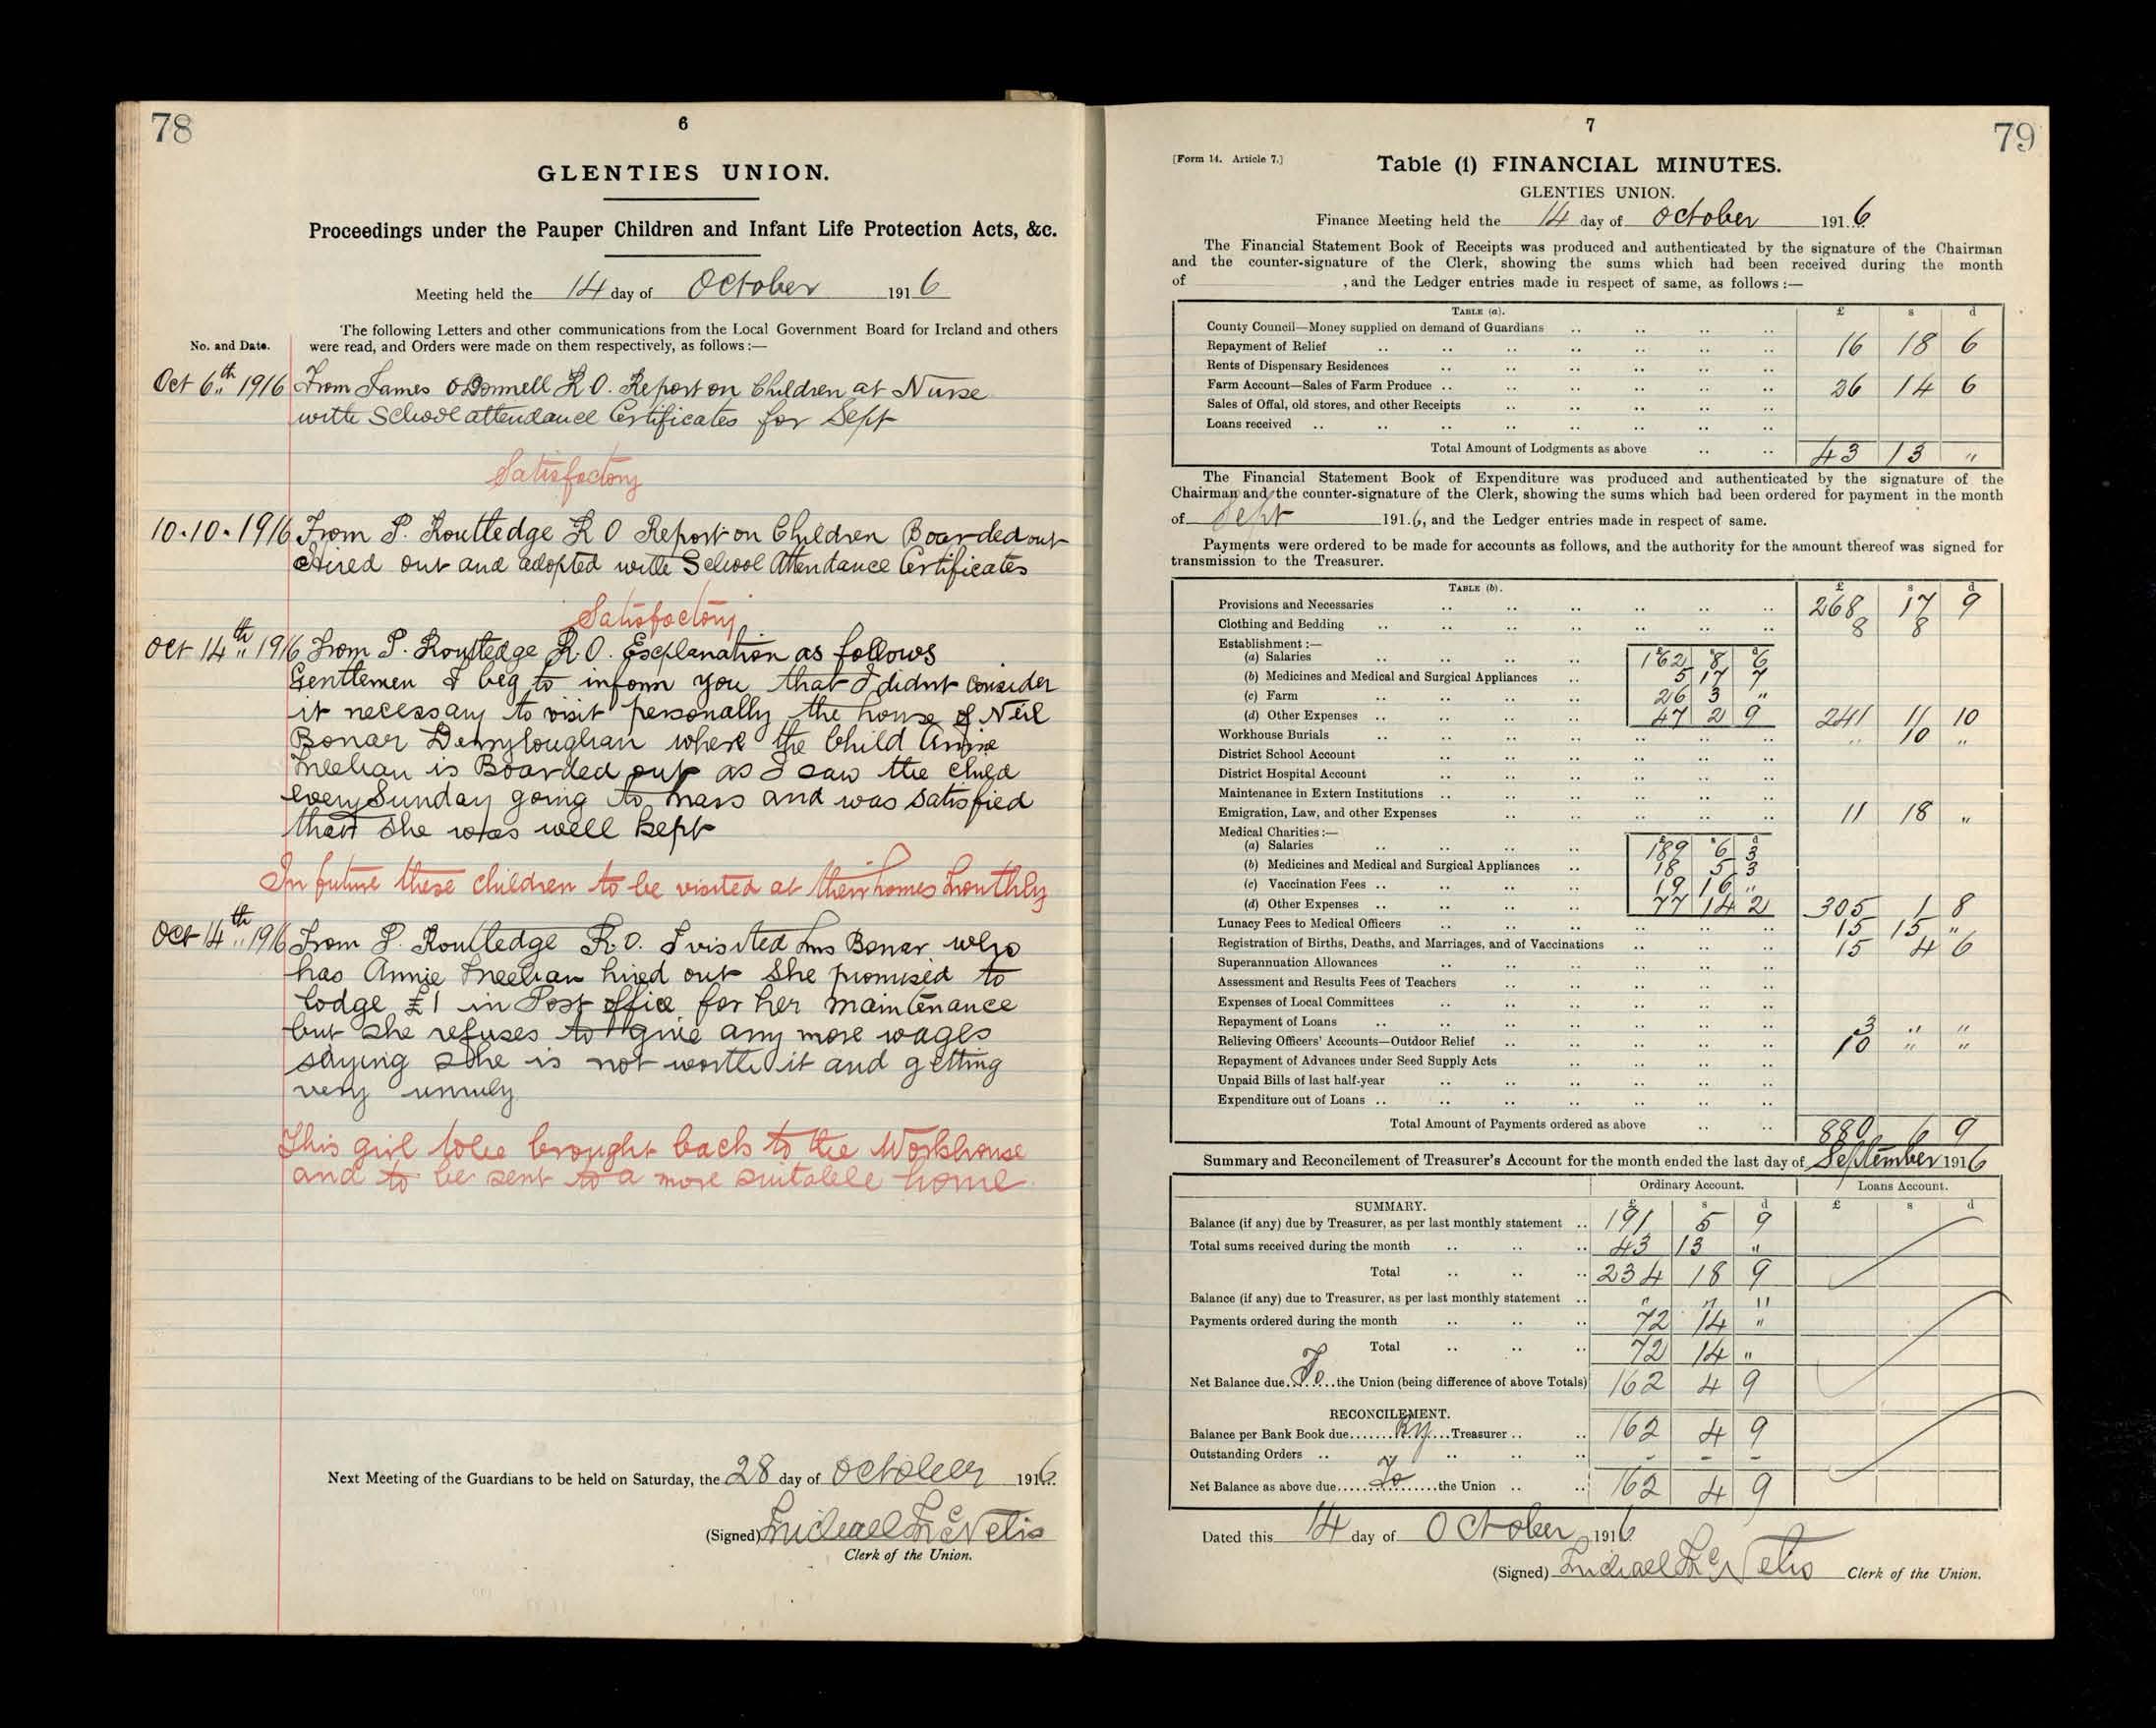 78
6
GLENTIES UNION.
Proceedings under the Pauper Children and Infant Life Protection Acts, &c.
Meeting held the 14 day of October 1916
The following Letters and other communications from the Local Government Board for Ireland and others
No. and Date. were read, and Orders were made on them respectively, as follows :—
Oct 6th 1916 From James O'Donnell R O. Report on Children at Nurse
with School attendance Certificates for Sept
Satisfactory
10.10.1916 From P. Routledge R O Report on Children Boarded out
Hired out and adopted with School Attendance Certificates
Satisfactory
Oct 14th 1916 From P. Routledge R.O. Explanation as follows
Gentlemen I beg to inform you that I didnt consider
it necessary to visit personally the house of Neil
Bonar Derryloughan where the Child Annie
Meehan is Boarded out as I saw the child
every Sunday going to Mass and was satisfied
that she was well kept
In future these children to be visited at their homes monthly
Oct 14th 1916 From P. Routledge R.O. I visited Mrs Bonar who
has Annie Meehan hired out She promised to
lodge £1 in Post office for her maintenance
but she refuses to give any more wages
saying she is not worth it and getting
very unruly
This girl to be brought back to the Workhouse
and to be sent to a more suitable home
Next Meeting of the Guardians to be held on Saturday, the 28 day of October 1916.
(Signed) Michael McNelis
Clerk of the Union.
79
7
[Form 14. Article 7.]
Table (1) FINANCIAL MINUTES.
GLENTIES UNION.
Finance Meeting held the 14 day of October 1916
The Financial Statement Book of Receipts was produced and authenticated by the signature of the Chairman
and the counter-signature of the Clerk, showing the sums which had been received during the month
of , and the Ledger entries made in respect of same, as follows :—
TABLE (a). £ s d
County Council—Money supplied on demand of Guardians
Repayment of Relief 16 18 6
Rents of Dispensary Residences
Farm Account—Sales of Farm Produce 26 14 6
Sales of Offal, old stores, and other Receipts
Loans received
Total Amount of Lodgments as above 43 13 "
The Financial Statement Book of Expenditure was produced and authenticated by the signature of the
Chairman and the counter-signature of the Clerk, showing the sums which had been ordered for payment in the month
of Sept 1916, and the Ledger entries made in respect of same.
Payments were ordered to be made for accounts as follows, and the authority for the amount thereof was signed for
transmission to the Treasurer.
TABLE (b). £ s d
Provisions and Necessaries 268 17 9
Clothing and Bedding 8 8
Establishment :— £ s d
(a) Salaries 162 8 6
(b) Medicines and Medical and Surgical Appliances 5 17 7
(c) Farm 26 3 "
(d) Other Expenses 47 2 9 241 11 10
Workhouse Burials " 10 "
District School Account
District Hospital Account
Maintenance in Extern Institutions
Emigration, Law, and other Expenses 11 18 "
Medical Charities :— £ s d
(a) Salaries 189 6 3
(b) Medicines and Medical and Surgical Appliances 18 5 3
(c) Vaccination Fees 19 16 "
(d) Other Expenses 77 14 2 305 1 8
Lunacy Fees to Medical Officers 15 15 "
Registration of Births, Deaths, and Marriages, and of Vaccinations 15 4 6
Superannuation Allowances
Assessment and Results Fees of Teachers
Expenses of Local Committees
Repayment of Loans 3 " "
Relieving Officers' Accounts—Outdoor Relief 10 " "
Repayment of Advances under Seed Supply Acts
Unpaid Bills of last half-year
Expenditure out of Loans
Total Amount of Payments ordered as above 880 6 9
Summary and Reconcilement of Treasurer's Account for the month ended the last day of September 1916
Ordinary Account. Loans Account.
SUMMARY. £ s d £ s d
Balance (if any) due by Treasurer, as per last monthly statement 191 5 9
Total sums received during the month 43 13 "
Total 234 18 9
Balance (if any) due to Treasurer, as per last monthly statement " " "
Payments ordered during the month 72 14 "
Total 72 14 "
Net Balance due To the Union (being difference of above Totals) 162 4 9
RECONCILEMENT.
Balance per Bank Book due By Treasurer 162 4 9
Outstanding Orders - - -
Net Balance as above due To the Union 162 4 9
Dated this 14 day of October 1916
(Signed) Michael McNelis Clerk of the Union.